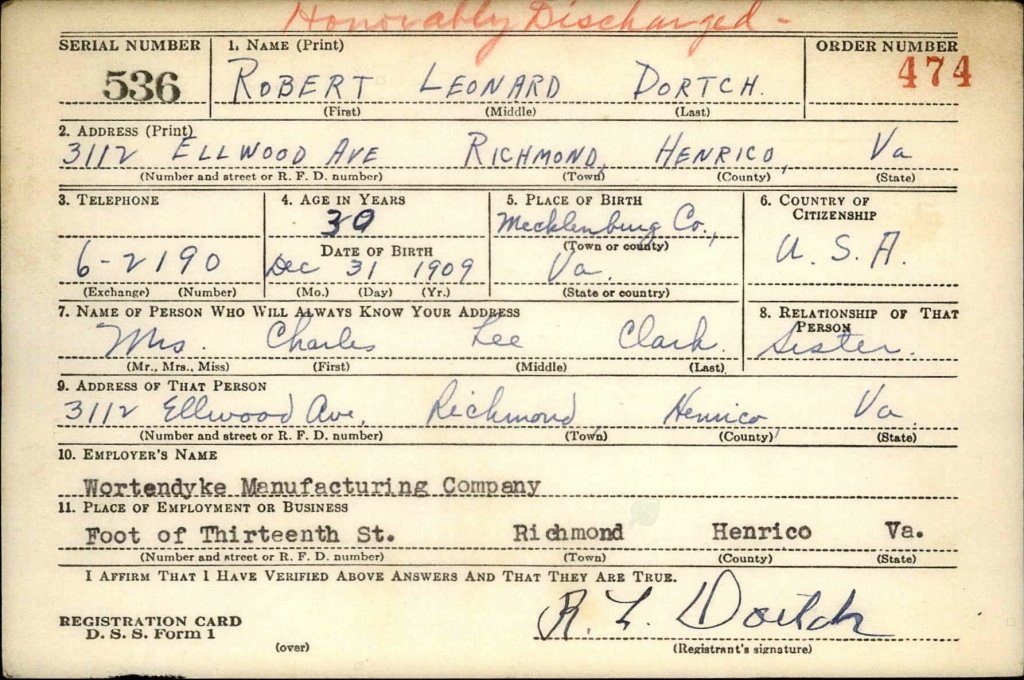 Honorably Discharged -
SERIAL NUMBER 1. NAME (Print) ORDER NUMBER
536 ROBERT LEONARD DORTCH. 474
(First) (Middle) (Last)
2. ADDRESS (Print)
3112 ELLWOOD AVE RICHMOND, HENRICO, Va
(Number and street or R. F. D. number) (Town) (County) (State)
3. TELEPHONE 4. AGE IN YEARS 5. PLACE OF BIRTH 6. COUNTRY OF CITIZENSHIP
30 Mecklenburg Co.,
DATE OF BIRTH (Town or county) U. S. A.
6-2190 Dec 31 1909 Va.
(Exchange) (Number) (Mo.) (Day) (Yr.) (State or country)
7. NAME OF PERSON WHO WILL ALWAYS KNOW YOUR ADDRESS 8. RELATIONSHIP OF THAT PERSON
Mrs. Charles Lee Clark. Sister.
(Mr., Mrs., Miss) (First) (Middle) (Last)
9. ADDRESS OF THAT PERSON
3112 Ellwood Ave, Richmond, Henrico, Va
(Number and street or R. F. D. number) (Town) (County) (State)
10. EMPLOYER'S NAME
Wortendyke Manufacturing Company
11. PLACE OF EMPLOYMENT OR BUSINESS
Foot of Thirteenth St. Richmond Henrico Va.
(Number and street or R. F. D. number) (Town) (County) (State)
I AFFIRM THAT I HAVE VERIFIED ABOVE ANSWERS AND THAT THEY ARE TRUE.
REGISTRATION CARD
D. S. S. Form 1 R. L. Dortch
(over) (Registrant's signature)